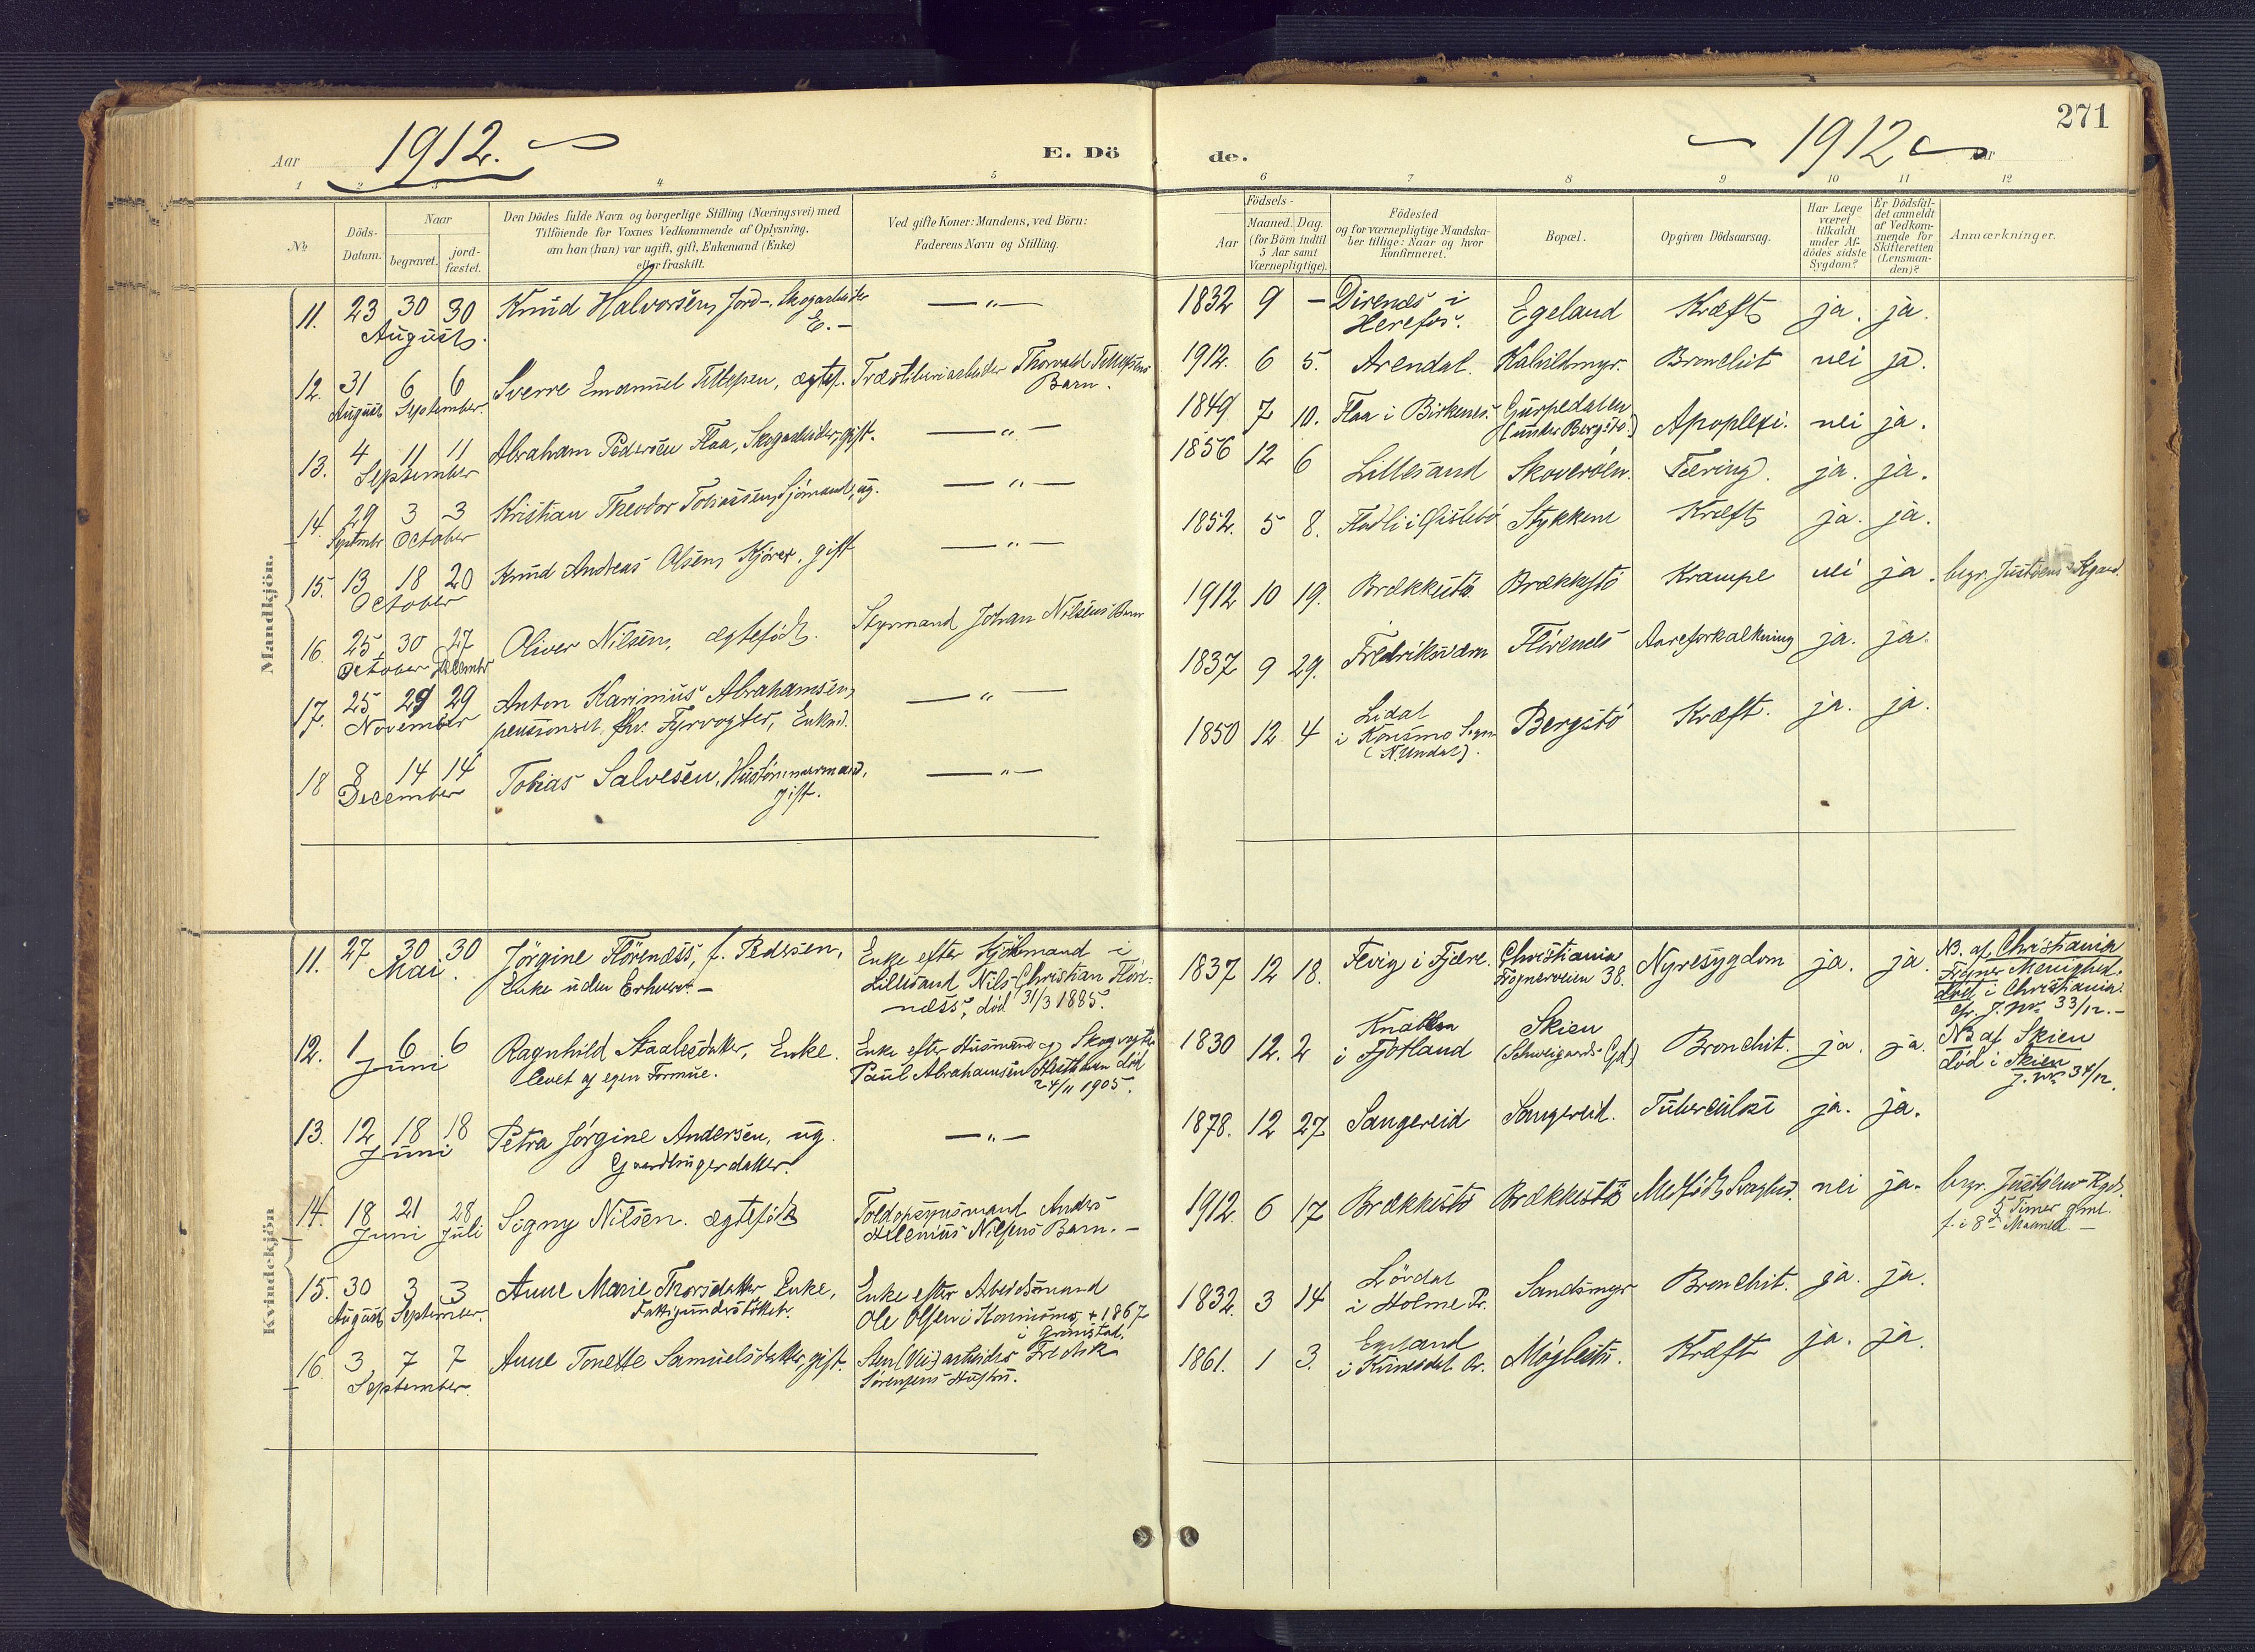 271
Aar 1912.
E. Dö
de.
1912 Aar
1 2 3 4 5
6 7 8 9 10 11 12
№
Döds-
Datum.
Naar
begravet.
jord-
fæstet.
Den Dödes fulde Navn og borgerlige Stilling (Næringsvei) med
Tilföiende for Voxnes Vedkommende af Oplysning,
om han (hun) var ugift, gift, Enkemand (Enke)
eller fraskilt.
Ved gifte Koner: Mandens, ved Börn:
Faderens Navn og Stilling.
Födsels-
Aar
Maaned. Dag.
(for Börn indtil
5 Aar samt
Værnepligtige).
Födested
og for værnepligtige Mandska-
ber tillige: Naar og hvor
konfirmeret.
Bopæl.
Opgiven Dödsaarsag.
Har Læge
været
tilkaldt
under Af-
dödes sidste
Sygdom?
Er Dödsfal-
det anmeldt
af Vedkom-
mende for
Skifteretten
(Lensman-
den)?
Anmærkninger.
Mandkjön.
11. 23 30 30 Knud Halvorsen, Jord-, Skogarbeider — " — 1832 9 – Direnes i Egeland Kræft ja. ja.
August. E.– Herefos.
12. 31 6 6 Sverre Emanuel Tellefsen, ægtef. Træsliberiarbeider Thorvald Tellefsens 1912. 6 5. Arendal. Kalvildmyr. Bronchit nei ja.
August September. Barn.
13. 4 11 11 Abraham Pedersen Flaa, Skogarbeider, gift. — " — 1849 7 10. Flaa i Birkenes. Gurpedalen Apoplexi. nei ja.
September (under Bergstø.)
14. 29 3 3 Kristian Theodor Tobiassen, Sjömand, ug. — " — 1856 12 6 Lillesand Skoveröen. Tæring. ja. ja.
Septembr October
15. 13 18 20 Knud Andreas Olsen, Kjörer, gift — " — 1852. 5 8. Stykkene Kræft ja. ja.
October
16. 25 30 27 Oliver Nilsen, ægteföd. Styrmand Johan Nilsens Barn 1912 10 19. Brækkestö Brækkestö Krampe nei ja. begr. Justöens Kgaard.
October Decembr
17. 25 29 29 Anton Karinius Abrahamsen, — " — 1837 9 29. Fredriksværn Flörenes Aareforkalkning ja. ja.
November pensioneret fhv. Fyrvogter, Enkmd.
18 8 14 14 Tobias Salvesen, Hustömmermand, — " — 1850 12 4 Lidal Bergstö Kræft. ja. ja.
December gift. i Konsmo Sogn
(N. Undal).
Kvindekjön
11. 27 30 30 Jörgine Flörenæss, f. Pedersen, Enke efter Kjöbmand i 1837 12 18. Fevig i Fjære. Christiania Nyresygdom ja. ja. NB. af Christiania
Mai. Enke uden Erhverv.– Lillesand Nils Christian Flöre- Frognerveien 38. Frogner Menighed.
næss, död 31/3 1885. död i Christiania.
cfr. J. Nr. 33/12.–
12. 1 6 6 Ragnhild Staalesdatter, Enke. Enke efter Husmand og Skogvogter 1830 12. 2 Knaben Skien Bronchit. ja. ja. NB af Skien
Juni levet af egen Formue. Paul Abrahamsen död i Fjotland (Schweigaards Gd.) död i Skien
24/11 1905. J. Nr. 34/12.
13. 12 18 18 Petra Jörgine Andersen, ug. — " — 1878. 12 27 Sangereid Sangereid. Tuberculose ja. ja.
Juni Gaardbrugerdatter.
14. 18 21 28 Signy Nilsen. ægteföd Toldopsynsmand Anders 1912. 6 17 Brækkestö Brækkestö Medfödt Svaghed. nei ja. begr. Justöens Kgd.
Juni Juli Nilsens Barn.– 5 Timer gml.
f. i 8de Maaned.–
15. 30 3 3 Anne Marie Thorsdatter Enke, Enke efter Arbeidsmand 1832. 3 14 Lövdal Sandsmyr Bronchit. ja. ja.
August September. Fattigunderstöttet. Ole Olsen i + 1867 i Holme Pr.
i Grimstad.
16. 3 7 7 Anne Tonette Samuelsdatter, gift. Sten(Vei)arbeider Fredrik 1861. 1 3. Egeland Möglestu. Kræft ja. ja.
September. Sörensens Hustru. i Kvinesdal Pr.